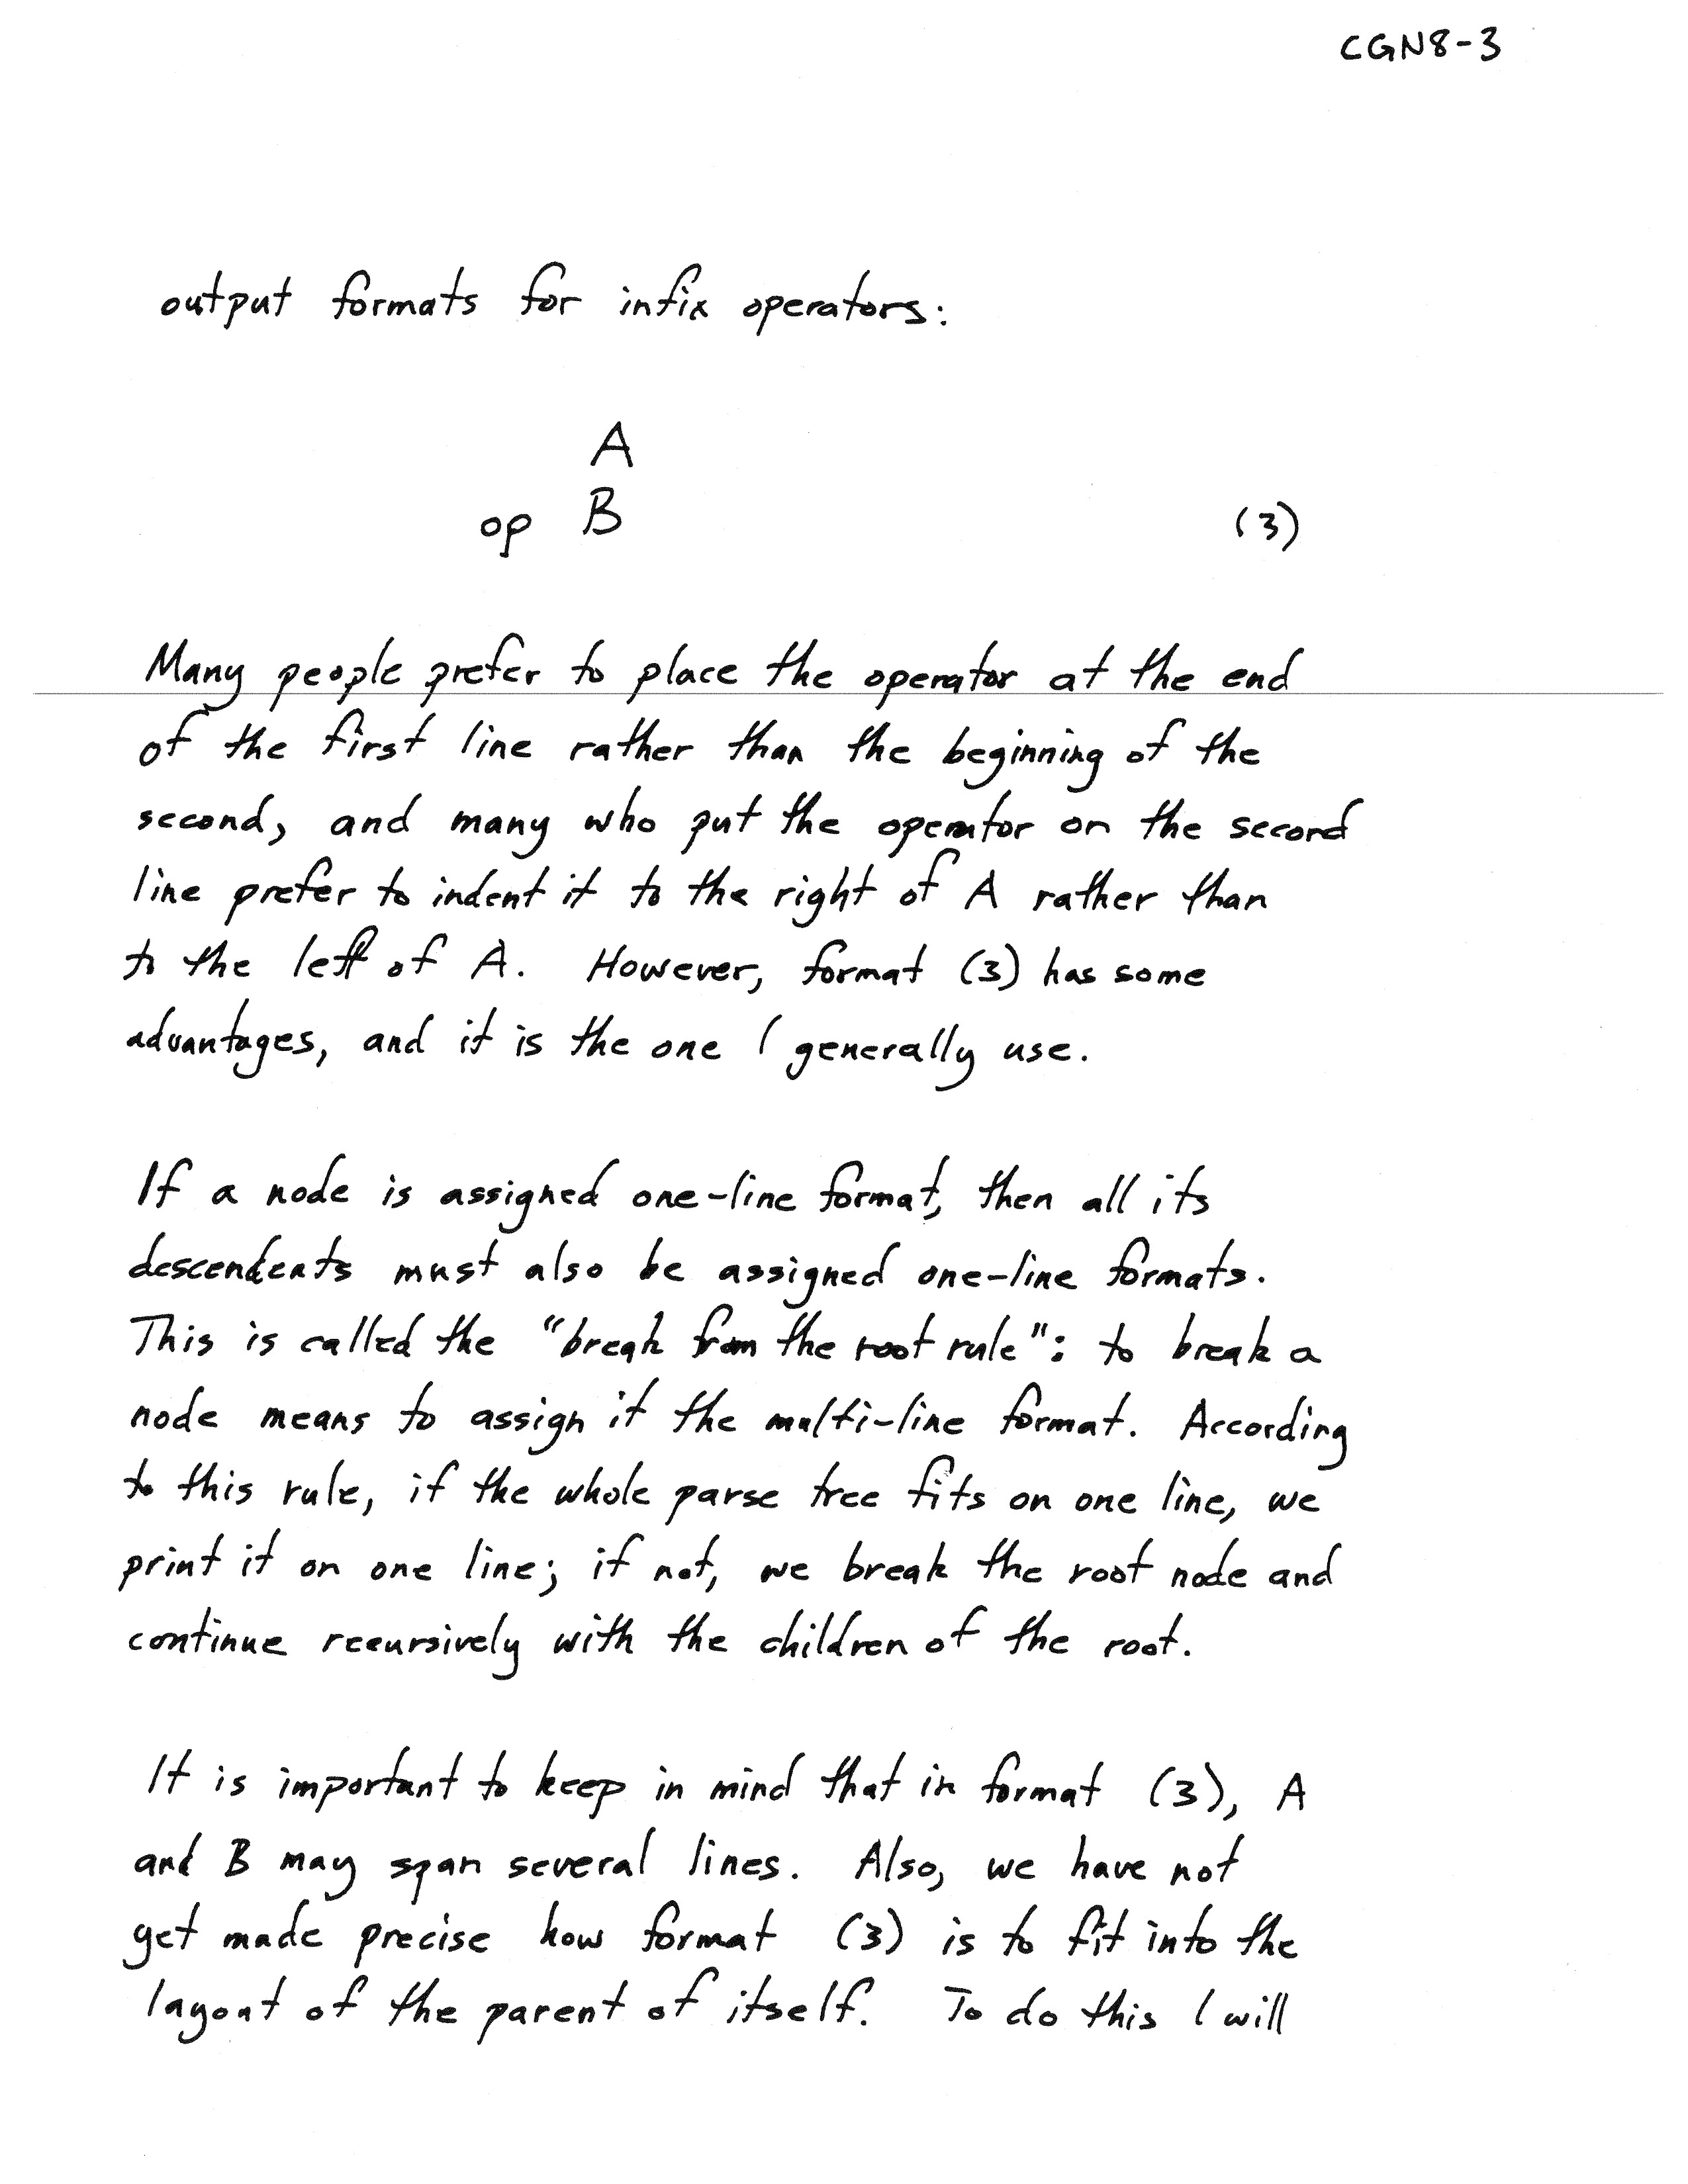 CGN8-3
output formats for infix operators:
A
op B (3)
Many people prefer to place the operator at the end
of the first line rather than the beginning of the
second, and many who put the operator on the second
line prefer to indent it to the right of A rather than
to the left of A. However, format (3) has some
advantages, and it is the one I generally use.
If a node is assigned one-line format, then all its
descendents must also be assigned one-line formats.
This is called the "break from the root rule": to break a
node means to assign it the multi-line format. According
to this rule, if the whole parse tree fits on one line, we
print it on one line; if not, we break the root node and
continue recursively with the children of the root.
It is important to keep in mind that in format (3), A
and B may span several lines. Also, we have not
yet made precise how format (3) is to fit into the
layout of the parent of itself. To do this I will